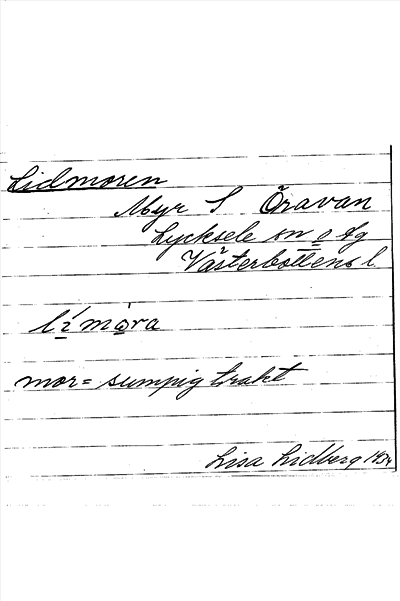 Lidmoren
Myr S Öravan
Lycksele sn o lg
Västerbottens l.
límòra
mor = sumpig trakt
Lisa Lidberg 1934